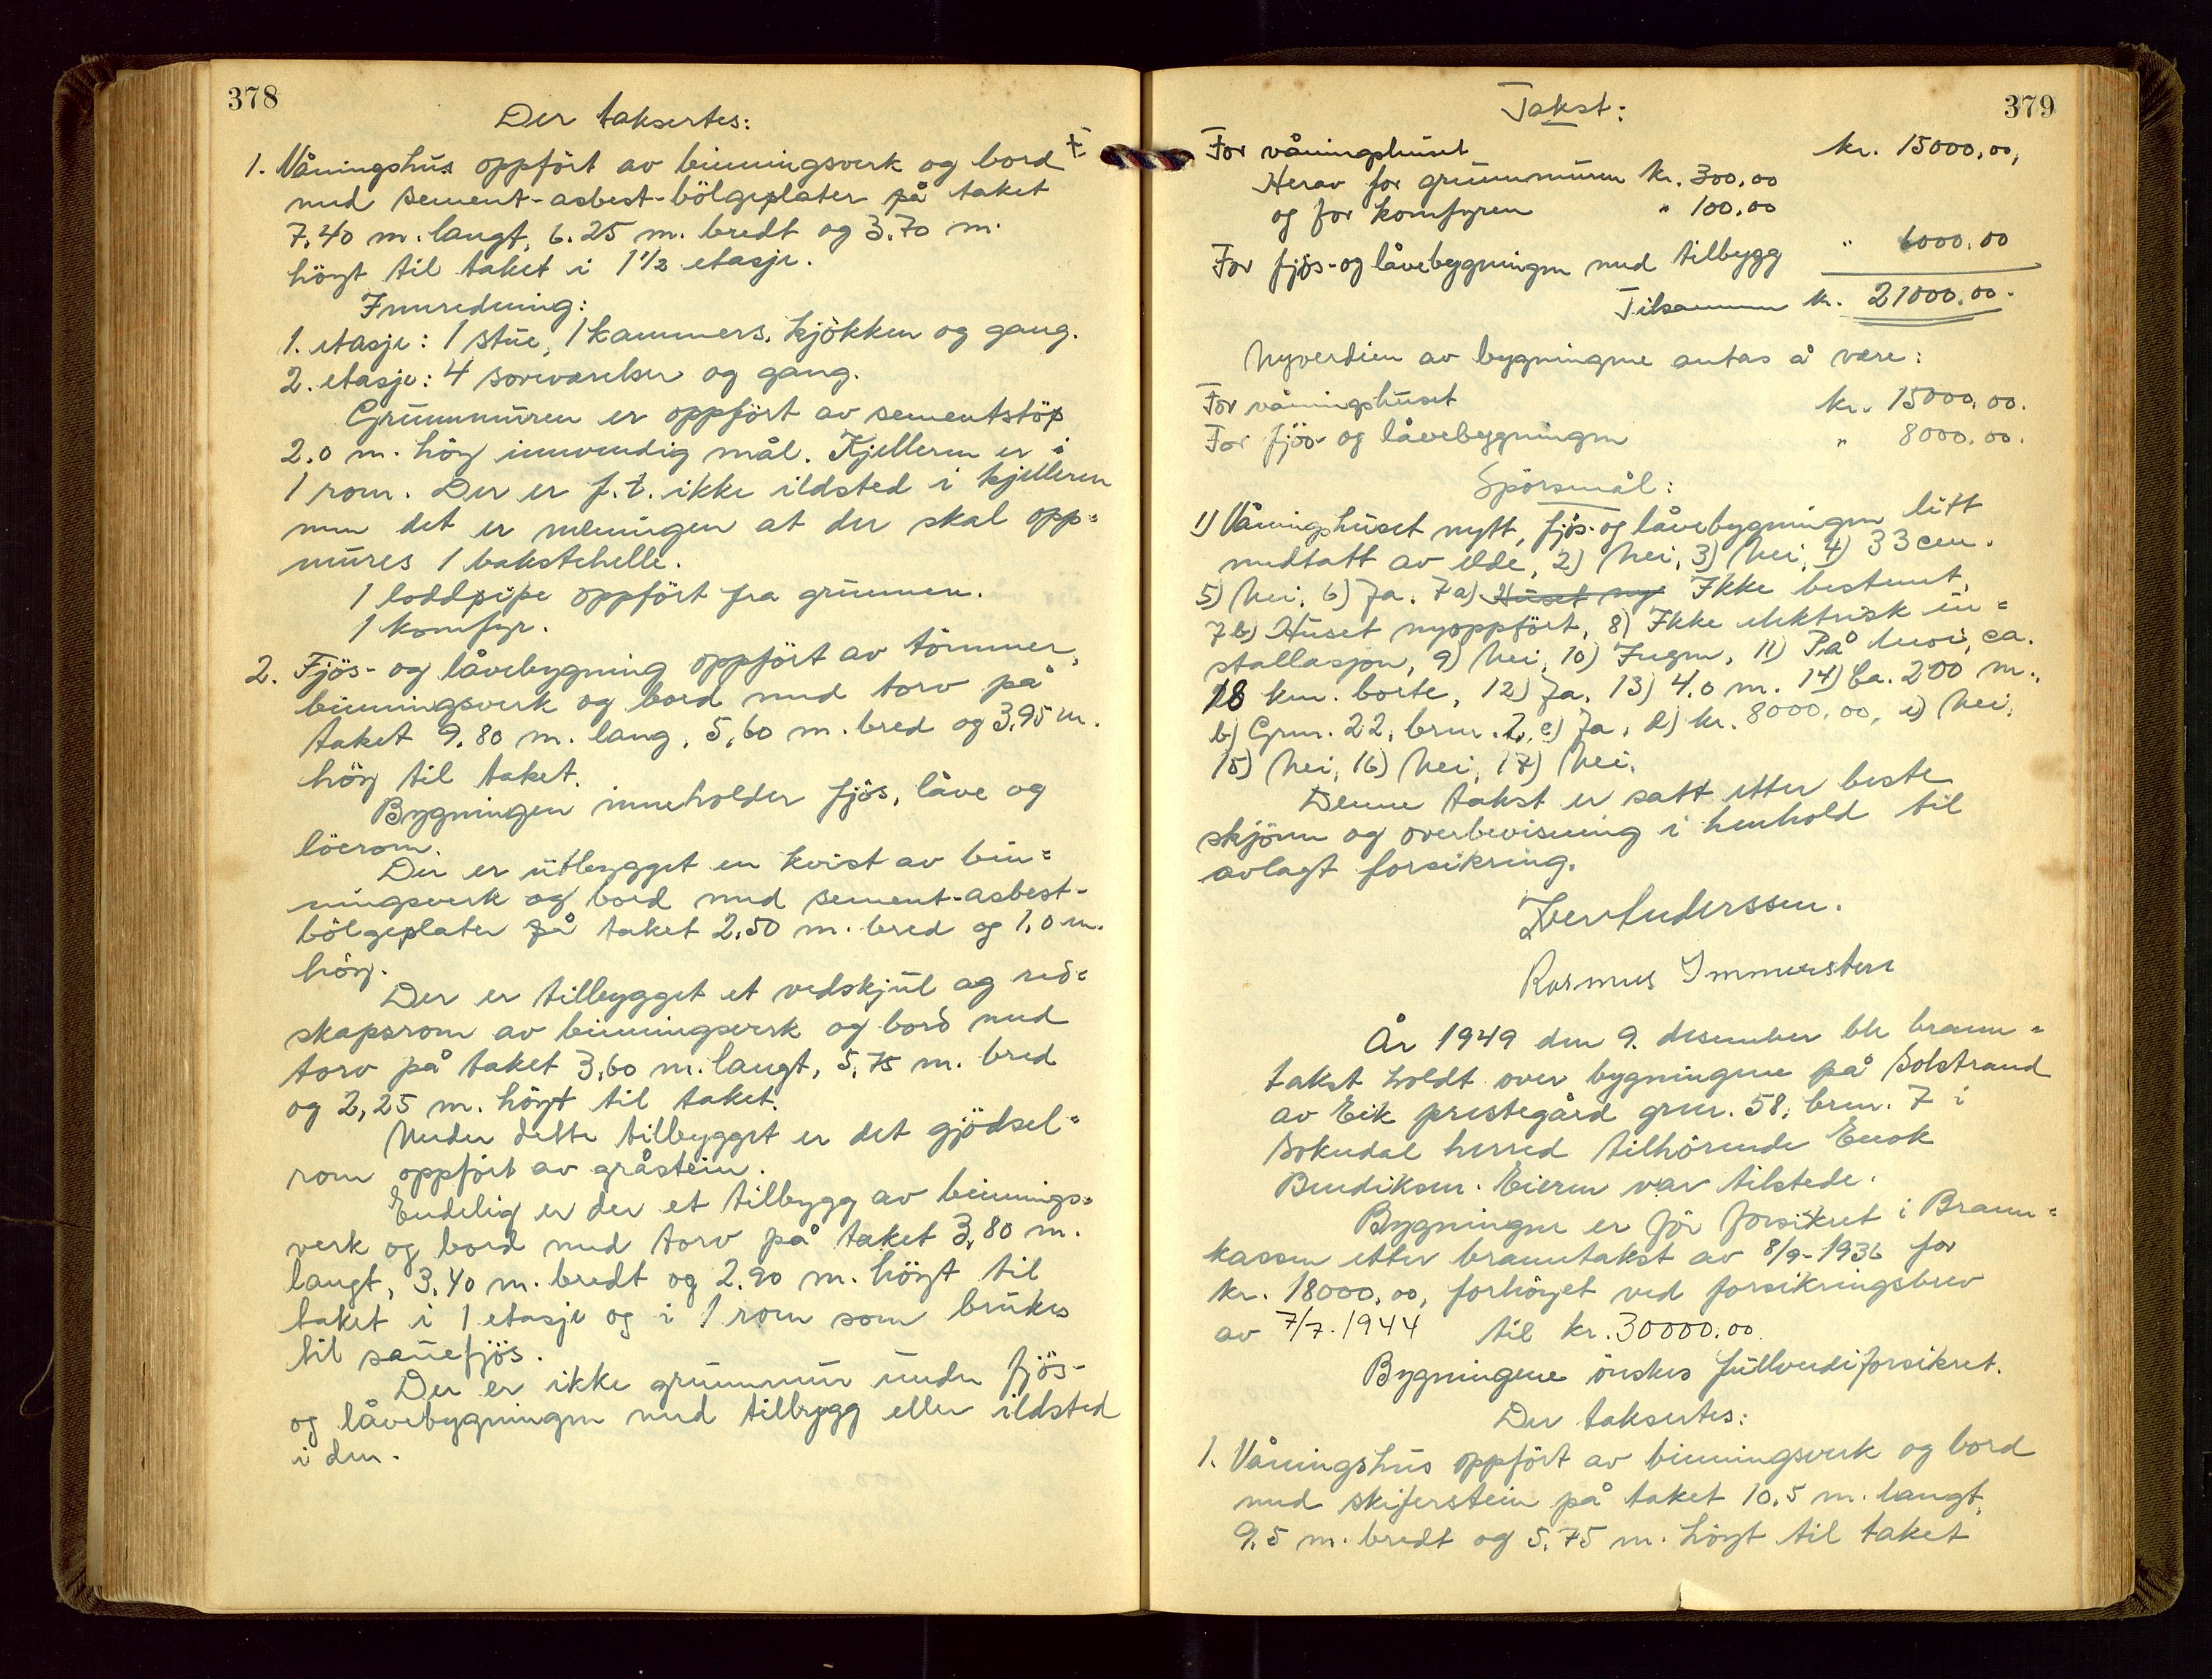 378
Der taksertes:
1. Våningshus oppført av binningsverk og bord
med sement-asbest-bölgeplater på taket
7,40 m. langt, 6.25 m. bredt og 3.70 m.
höyt til taket i 1 1/2 etasje.
Innredning:
1. etasje: 1 stue, 1 kammers, kjökken og gang.
2. etasje: 4 soveværelser og gang.
Grunnmuren er oppfört av sementstöp
2.0 m. höy innvendig mål. Kjelleren er i
1 rom. Der er f.t. ikke ildsted i kjelleren
men det er meningen at der skal opp=
mures 1 bakstehelle.
1 loddpipe oppfört fra grunnen.
1 komfyr.
2. Fjös- og låvebygning oppfört av tömmer,
binningsverk og bord med torv på
taket 9.80 m. lang, 5,60 m. bred og 3.95 m.
höy til taket.
Bygningen inneholder fjös, låve og
löerom.
Der er utbygget en kvist av bin=
ningsverk og bord med sement-asbest-
bölgeplater på taket 2,50 m. bred og 1,0 m.
höy.
Der er tilbygget et vedskjul og red=
skapsrom av binningsverk og bord med
torv på taket 3,60 m. langt, 5,75 m. bred
og 2,25 m. höyt til taket.
Under dette tilbygget er det gjödsel=
rom oppfört av gråstein.
Endelig er der et tilbygg av binnings=
verk og bord med torv på taket 3,80 m.
langt, 3,40 m. bredt og 2.90 m. höyt til
taket i 1 etasje og i 1 rom som brukes
til sauefjös.
Der er ikke grunnmur under fjös-
og låvebygningen med tilbygg eller ildsted
i den.
379
Takst:
For våningshuset kr. 15000,00,
Herav for grunnmuren kr. 300,00
og for komfyren " 100,00
For fjös- og låvebygningen med tilbygg " 6000,00
Tilsammen kr. 21000,00.
Nyverdien av bygningene antas å være:
For våningshuset kr. 15000,00.
For fjös- og låvebygningen " 8000,00.
Spörsmål:
1) Våningshuset nytt, fjös- og låvebygningen litt
medtatt av elde, 2) Nei, 3) Nei, 4) 33 cm.
5) Nei, 6) Ja, 7a) Huset ny Ikke bestemt,
7b) Huset nyoppfört, 8) Ikke elektrisk in=
stallasjon, 9) Nei, 10) Ingen, 11) På Moi, ca.
18 km. borte, 12) Ja, 13) 4.0 m. 14) Ca. 200 m.,
b) Grnr. 22, brnr. 2, c) Ja, d) kr. 8000,00, e) Nei,
15) Nei, 16) Nei, 17) Nei.
Denne takst er satt etter beste
skjönn og overbevisning i henhold til
avlagt forsikring.
Iver Anderssen.
Rasmus Immerstein
År 1949 den 9. desember ble brann=
takst holdt over bygningene på Solstrand
av Eik prestegård grnr. 58, brnr. 7 i
Sokndal herred tilhörende Enok
Bendiksen. Eieren var tilstede.
Bygningene er för forsikret i Brann=
kassen etter branntakst av 8/9-1936 for
kr. 18000,00, forhöyet ved forsikringsbrev
av 7/7.1944 til kr. 30000.00.
Bygningene önskes fullverdiforsikret.
Der taksertes:
1. Våningshus oppfört av binningsverk og bord
med skiferstein på taket 10,5 m. langt,
9,5 m. bredt og 5,75 m. höyt til taket